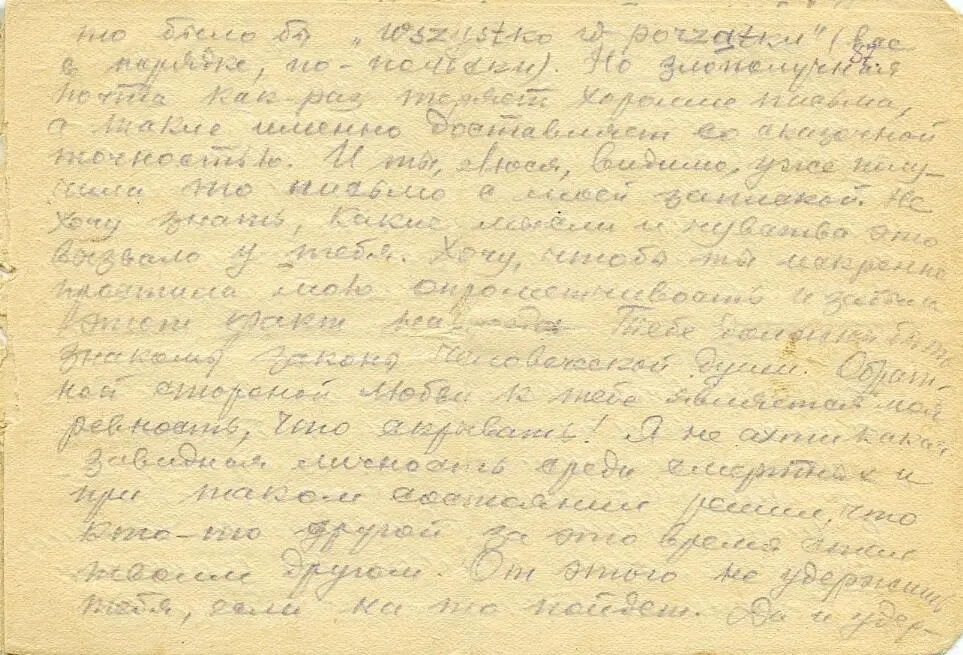 то было бы „wszystko w porządku" (все
в порядке, по-польски). Но злополучная
почта как раз теряет хорошие письма,
а такие именно доставляет со сказочной
точностью. И ты, Люся, видимо, уже полу-
чила то письмо с моей запиской. Не
хочу знать, какие мысли и чувства это
вызвало у тебя. Хочу, чтобы ты искренне
простила мою опрометчивость и забыла
этот факт Тебе должны быть
знакомы законы человеческой души. Обрат-
ной стороной любви к тебе является моя
ревность, что скрывать! Я не ахти какая
завидная личность среди смертных и
при таком состоянии решил, что
кто-то другой за это время стал
твоим другом. От этого не удержишь
тебя, если на то пойдет. Да и удер-